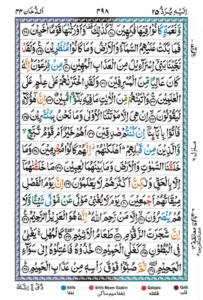 الدخان ۴۴
۴۹۸
اليه يرد ۲۵
وَّنَعْمَةٍ كَانُوْا فِيْهَا فٰكِهِيْنَ كَذٰلِكَ وَاَوْرَثْنٰهَا قَوْمًا اٰخَرِيْنَ
فَمَا بَكَتْ عَلَيْهِمُ السَّمَآءُ وَالْاَرْضُ وَمَا كَانُوْا مُنْظَرِيْنَ وَلَقَدْ
نَجَّيْنَا بَنِيْٓ اِسْرَآءِيْلَ مِنَ الْعَذَابِ الْمُهِيْنِ مِنْ فِرْعَوْنَ اِنَّهٗ
كَانَ عَالِيًا مِّنَ الْمُسْرِفِيْنَ وَلَقَدِ اخْتَرْنٰهُمْ عَلٰى عِلْمٍ عَلَى
الْعٰلَمِيْنَ وَاٰتَيْنٰهُمْ مِّنَ الْاٰيٰتِ مَا فِيْهِ بَلٰٓؤٌا مُّبِيْنٌ اِنَّ هٰٓؤُلَآءِ
لَيَقُوْلُوْنَ اِنْ هِيَ اِلَّا مَوْتَتُنَا الْاُوْلٰى وَمَا نَحْنُ بِمُنْشَرِيْنَ
فَاْتُوْا بِاٰبَآئِنَآ اِنْ كُنْتُمْ صٰدِقِيْنَ اَهُمْ خَيْرٌ اَمْ قَوْمُ تُبَّعٍ
وَّالَّذِيْنَ مِنْ قَبْلِهِمْ اَهْلَكْنٰهُمْ اِنَّهُمْ كَانُوْا مُجْرِمِيْنَ وَمَا
خَلَقْنَا السَّمٰوٰتِ وَالْاَرْضَ وَمَا بَيْنَهُمَا لٰعِبِيْنَ مَا خَلَقْنٰهُمَآ
اِلَّا بِالْحَقِّ وَلٰكِنَّ اَكْثَرَهُمْ لَا يَعْلَمُوْنَ اِنَّ يَوْمَ الْفَصْلِ
مِيْقَاتُهُمْ اَجْمَعِيْنَ يَوْمَ لَا يُغْنِيْ مَوْلًى عَنْ مَّوْلًى شَيْـًٔا وَّلَا
هُمْ يُنْصَرُوْنَ اِلَّا مَنْ رَّحِمَ اللّٰهُ اِنَّهٗ هُوَ الْعَزِيْزُ الرَّحِيْمُ
اِنَّ شَجَرَتَ الزَّقُّوْمِ طَعَامُ الْاَثِيْمِ كَالْمُهْلِ يَغْلِيْ
فِي الْبُطُوْنِ كَغَلْيِ الْحَمِيْمِ خُذُوْهُ فَاعْتِلُوْهُ اِلٰى سَوَآءِ
الْجَحِيْمِ ثُمَّ صُبُّوْا فَوْقَ رَاْسِهٖ مِنْ عَذَابِ الْحَمِيْمِ
Ikhfa
Ikhfa Meem Saakin
Qalqala
Qalb